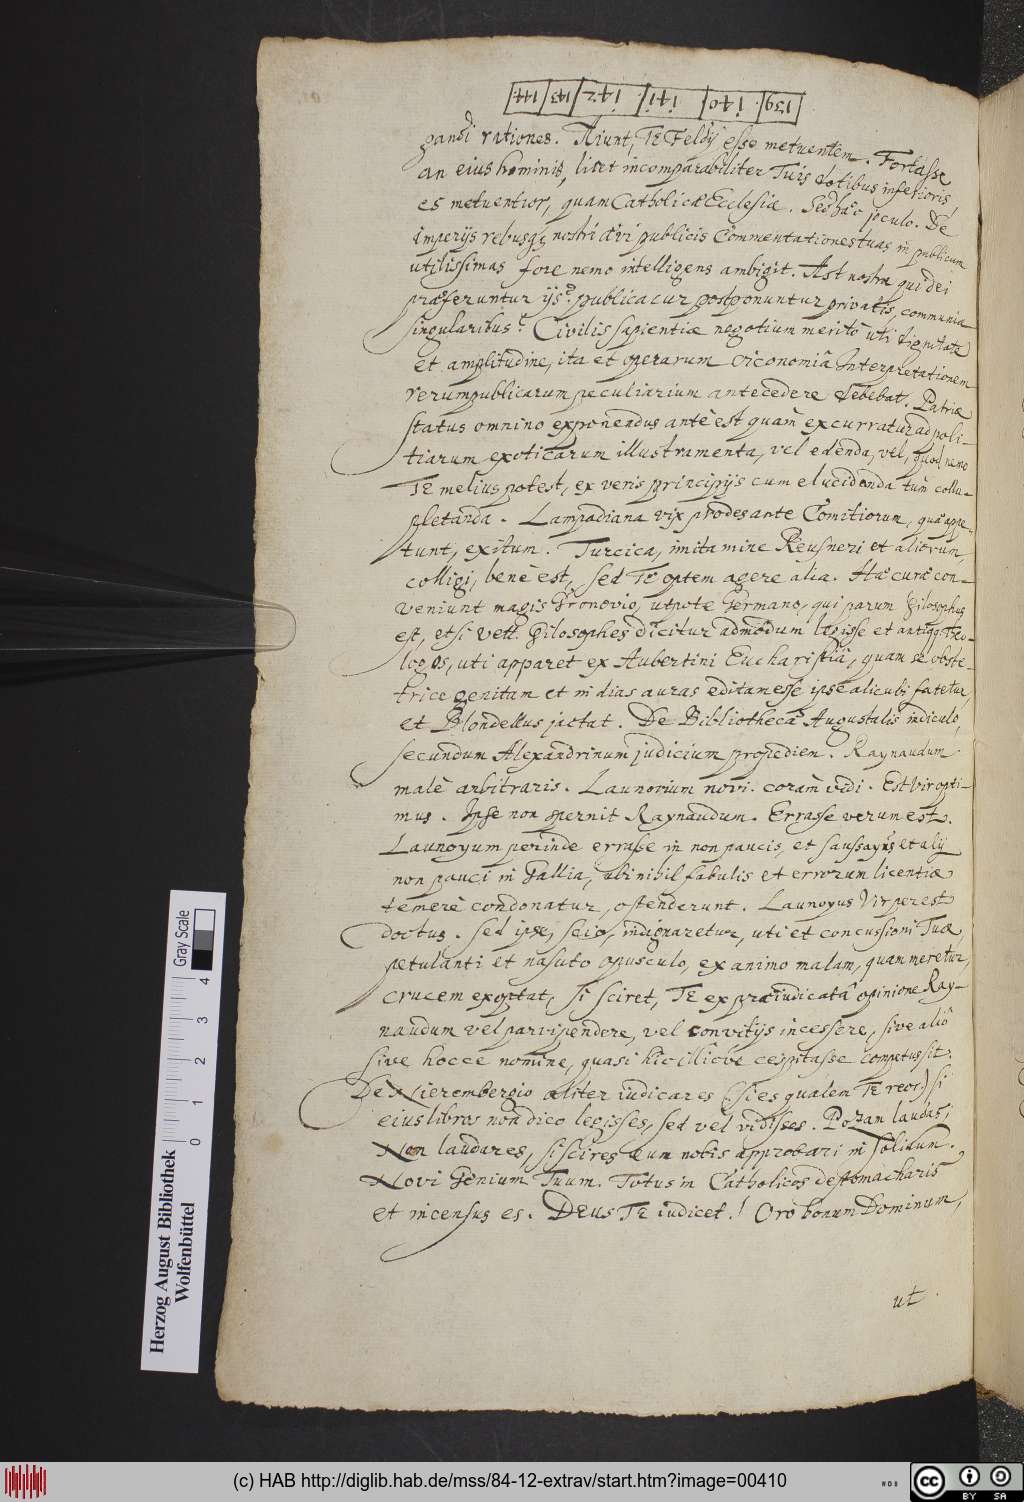 144 143 142 141 140 139
gandi rationes. Aiunt, TE Feldij esse metuentem. Fortasse
an eius hominis, licet incomparabiliter Tuis dotibus inferioris,
es metuentior, quam Catholicæ Ecclesiæ. Sed hæc joculo. De
imperijs rebusq; nostri ævi publicis Commentationes tuas in publicum
utilissimas fore nemo intelligens ambigit. Ast nostra qui dei
præferuntur ijs? publica cur postponuntur privatis, communia
singularibus? Civilis sapientiæ negotium meritò uti dignitate
et amplitudine, ita et operarum œconomiâ Interpretationem
rerumpublicarum peculiarium antecedere debebat. Patriæ
status omnino exponendus antè est quam excurratur ad poli-
tiarum exoticarum illustramenta, vel edenda, vel, quod nemo
TE melius potest, ex veris principijs cum elucidanda tùm collu-
pletanda. Lampadiana vix prodes ante Comitiorum, quæ appe-
tunt, exitum. Turcica, imitamine Reusneri et aliorum,
colligi, benè est, sed TE optem agere alia. Hæ curæ con-
veniunt magis Gronovio, utpote Germano, qui parum philosophus
est, etsi vett. Philosophos dicitur admodum legisse et antiqq. Theo-
logos, uti apparet ex Aubertini Eucharistiâ, quam se obste-
trice genitam et in dias auras editam esse ipse alicubi fatetur,
et Blondellus jactat. De Bibliothecæ Augustalis indiculo,
secundum Alexandrinum judicium propediem. Raynaudum
malè arbitraris. Launorium novi. coràm vidi. Est vir opti-
mus. Ipse non spernit Raynaudum. Errasse verum est.
Launoyum perinde errasse in non paucis, et Saussayus et alij
non pauci in Gallia, ubi nihil fabulis et errorum licentiæ
temerè condonatur, ostenderunt. Launoyus Vir perest
doctus. Sed ipse, scio, indignaretur, uti et concussioni Tuæ,
petulanti et nasuto opusculo, ex animo malam, quam meretur,
crucem exoptat, si sciret, TE ex præiudicatâ opinione Ray-
naudum vel parvipendere, vel convitijs incessere, sive aliô
sive hocce nomine, quasi hîc illîcve cespitasse compertus sit.
De Nierembergio aliter iudicares (si es qualem TE reor) si
eius libros non dico legisses, sed vel vidisses. Pozam laudas;
Non laudares, si scires eum nobis approbari in solidum.
Novi Genium Tuum. Totus in Catholicos destomacharis
et incensus es. DEUS TE iudicet! Oro bonum Dominum,
ut
Herzog August Bibliothek
Wolfenbüttel
0 1 2 3 4
Gray Scale
(c) HAB http://diglib.hab.de/mss/84-12-extrav/start.htm?image=00410
cc BY SA